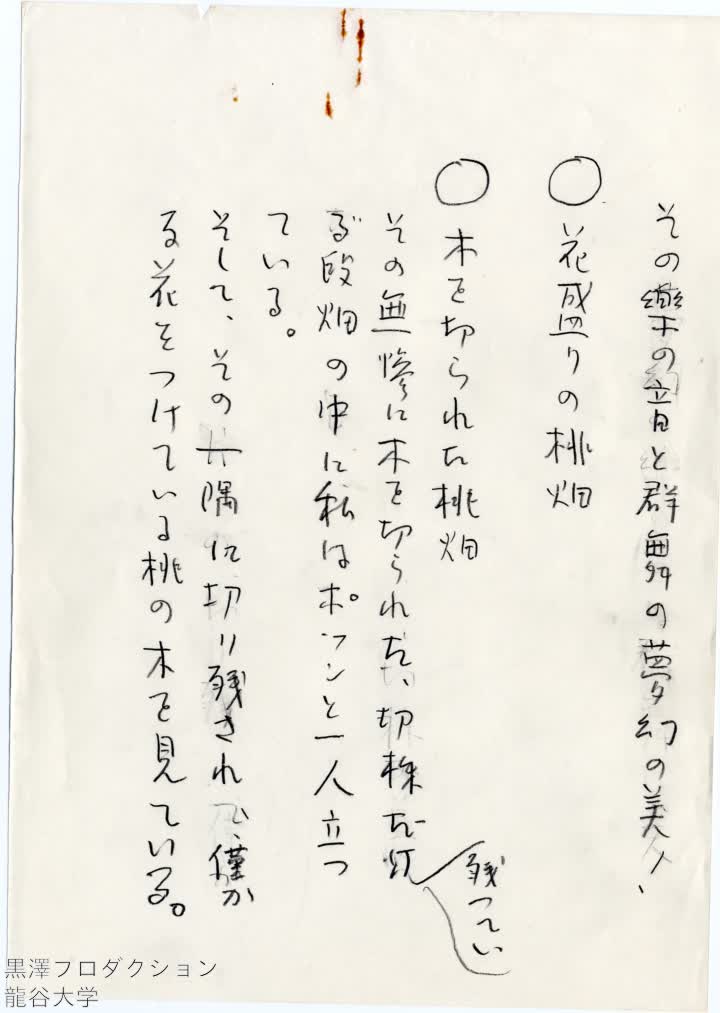 その樂の音と群舞の夢幻の美久、
○ 花盛りの桃畑
○ 木を切られた桃畑
その無惨に木を切られた、切株だけ
残ってい
る段畑の中に私はポツンと一人立つ
ている。
そして、その片隅に切り残されて、僅か
る花をつけている桃の木を見ている。
黒澤プロダクション
龍谷大学